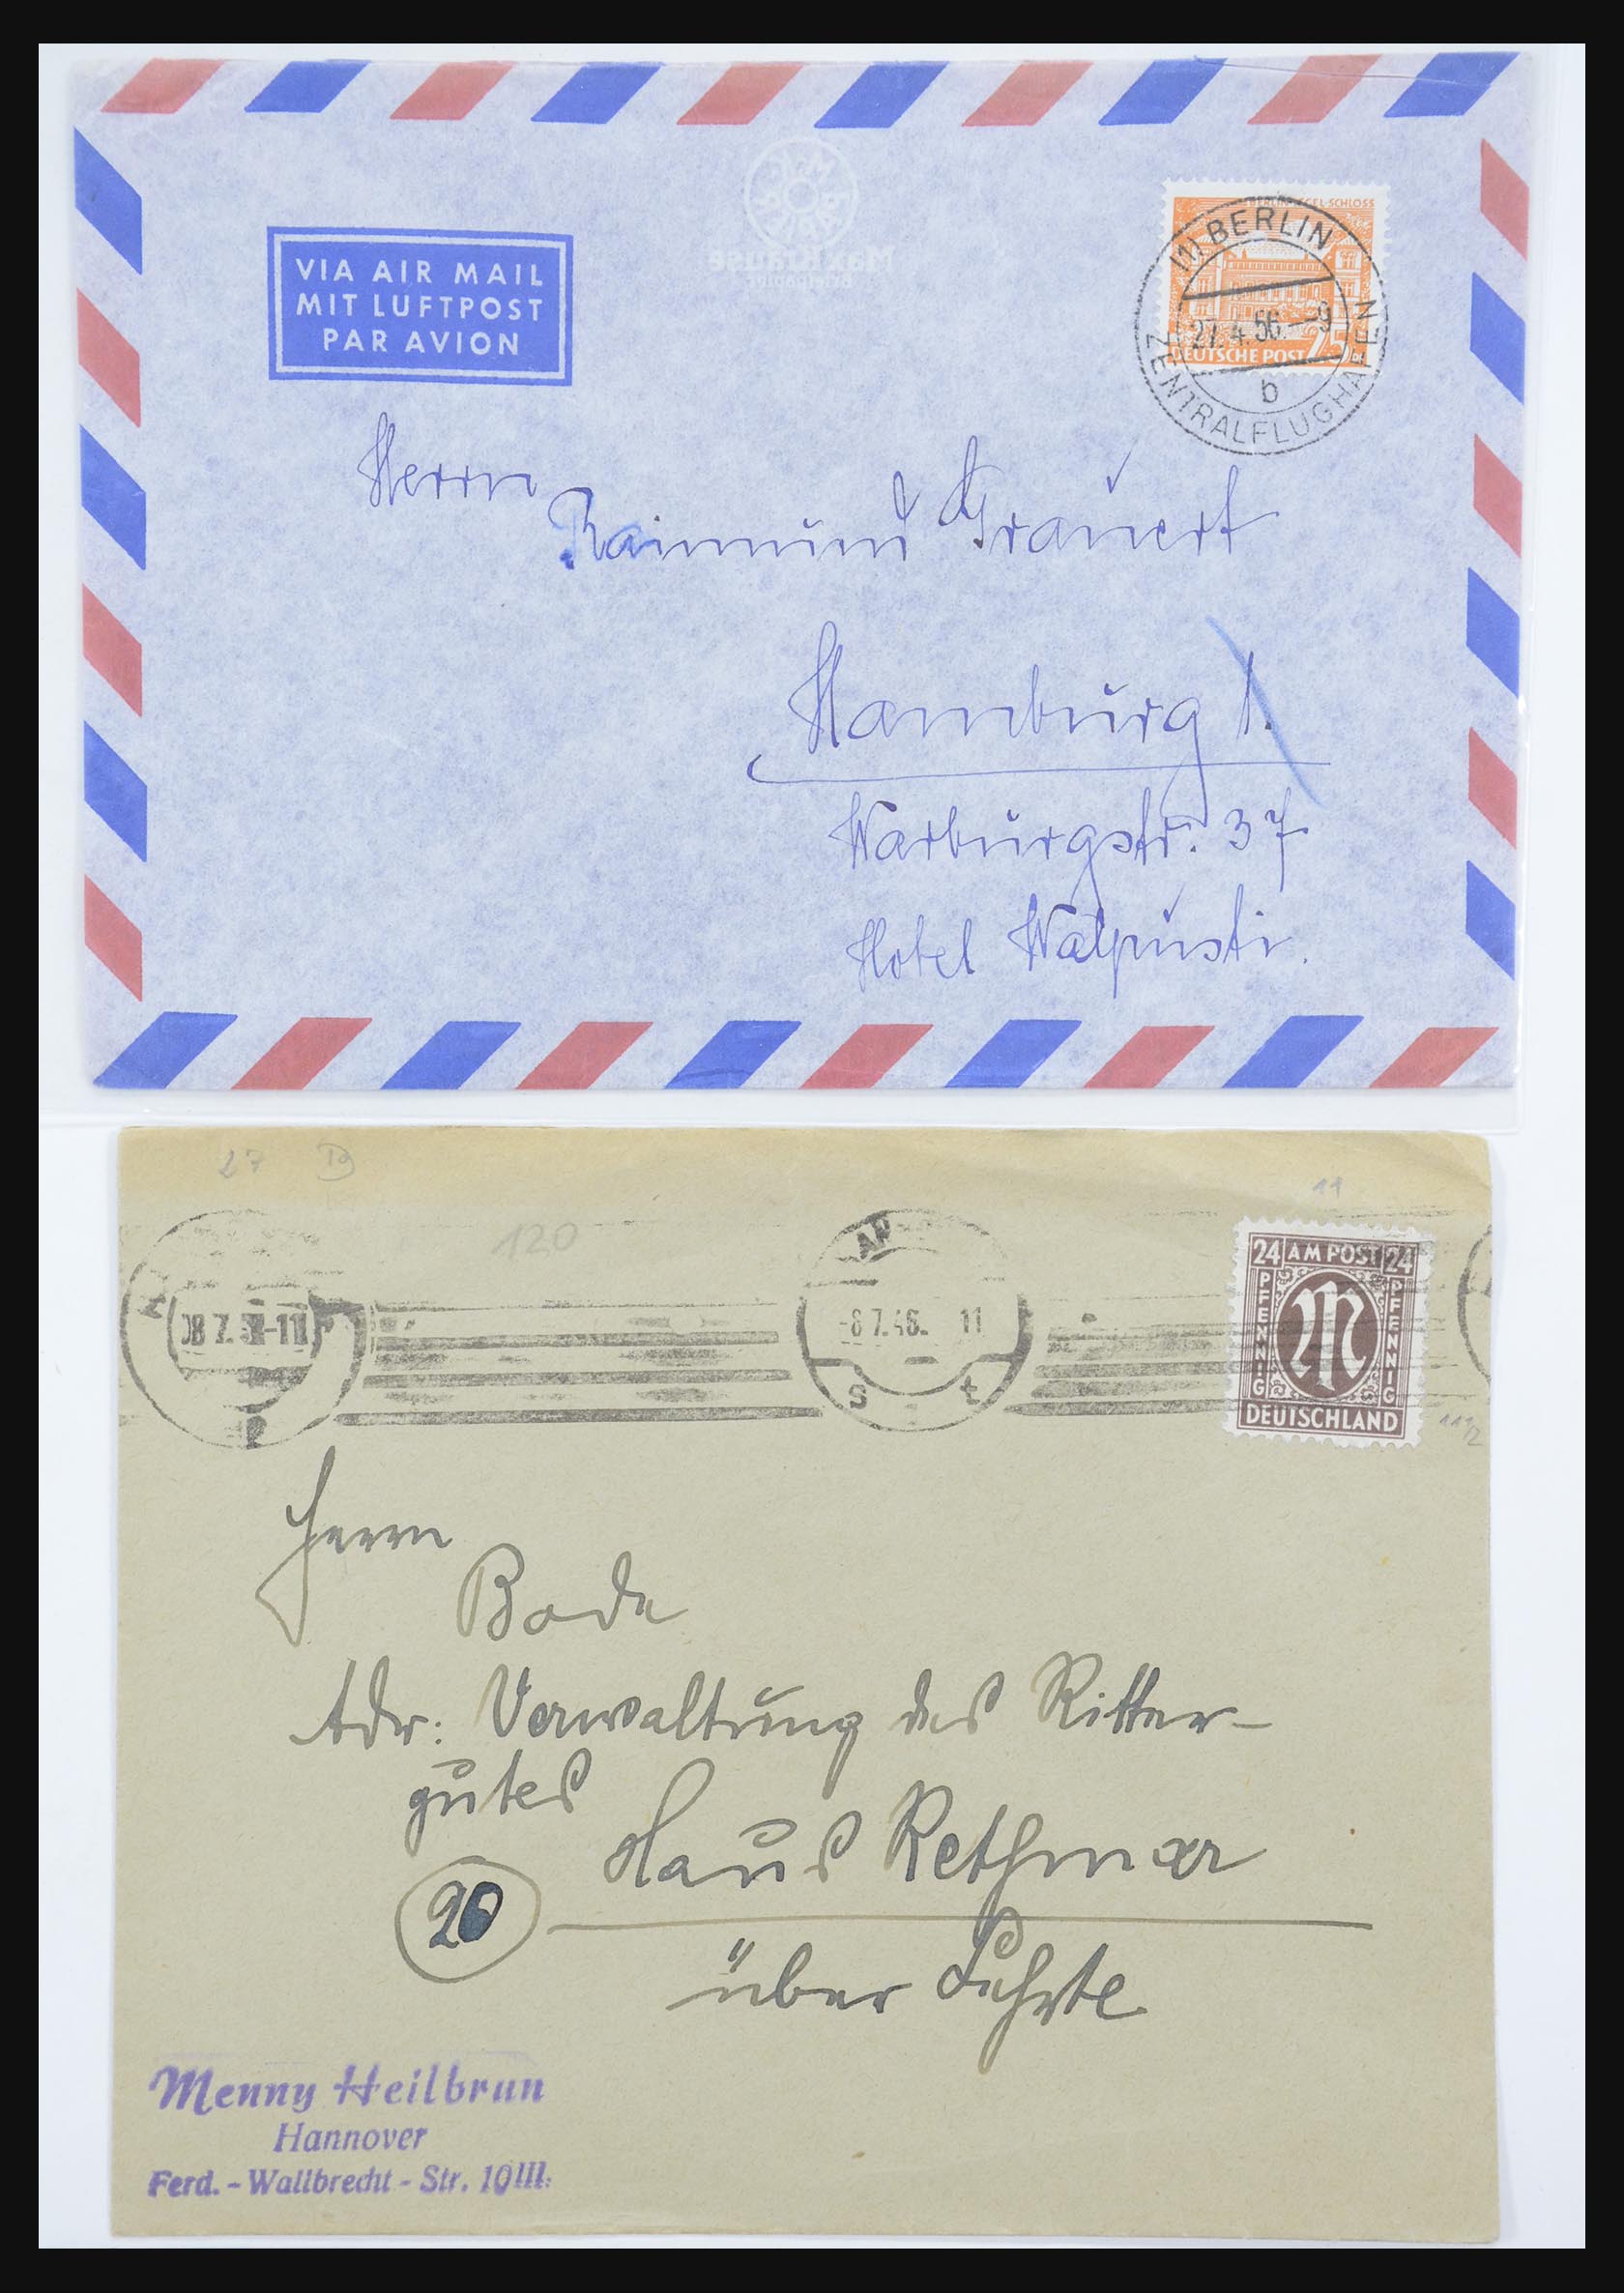 VIA AIR MAIL
MIT LUFTPOST
PAR AVION
Max Krause
Briefpapier
TEGEL-SCHLOSS
DEUTSCHE POST 25
(1) BERLIN
27.4.56.--9
b
ZENTRALFLUGHAFEN
Herrn
Raimund Grauert
Hamburg 1.
Warburgstr. 37
Hotel
27
120
11
08 7. -11
-8 7.46. 11
24 AM POST 24
PFENNIG
PFENNIG
M
DEUTSCHLAND
11 1/2
Herrn
Bode
Adr: Verwaltung des Ritter-
gutes
Haus Rethmar
20
über Lehrte
Menny Heilbrun
Hannover
Ferd. - Wallbrecht - Str. 10III.